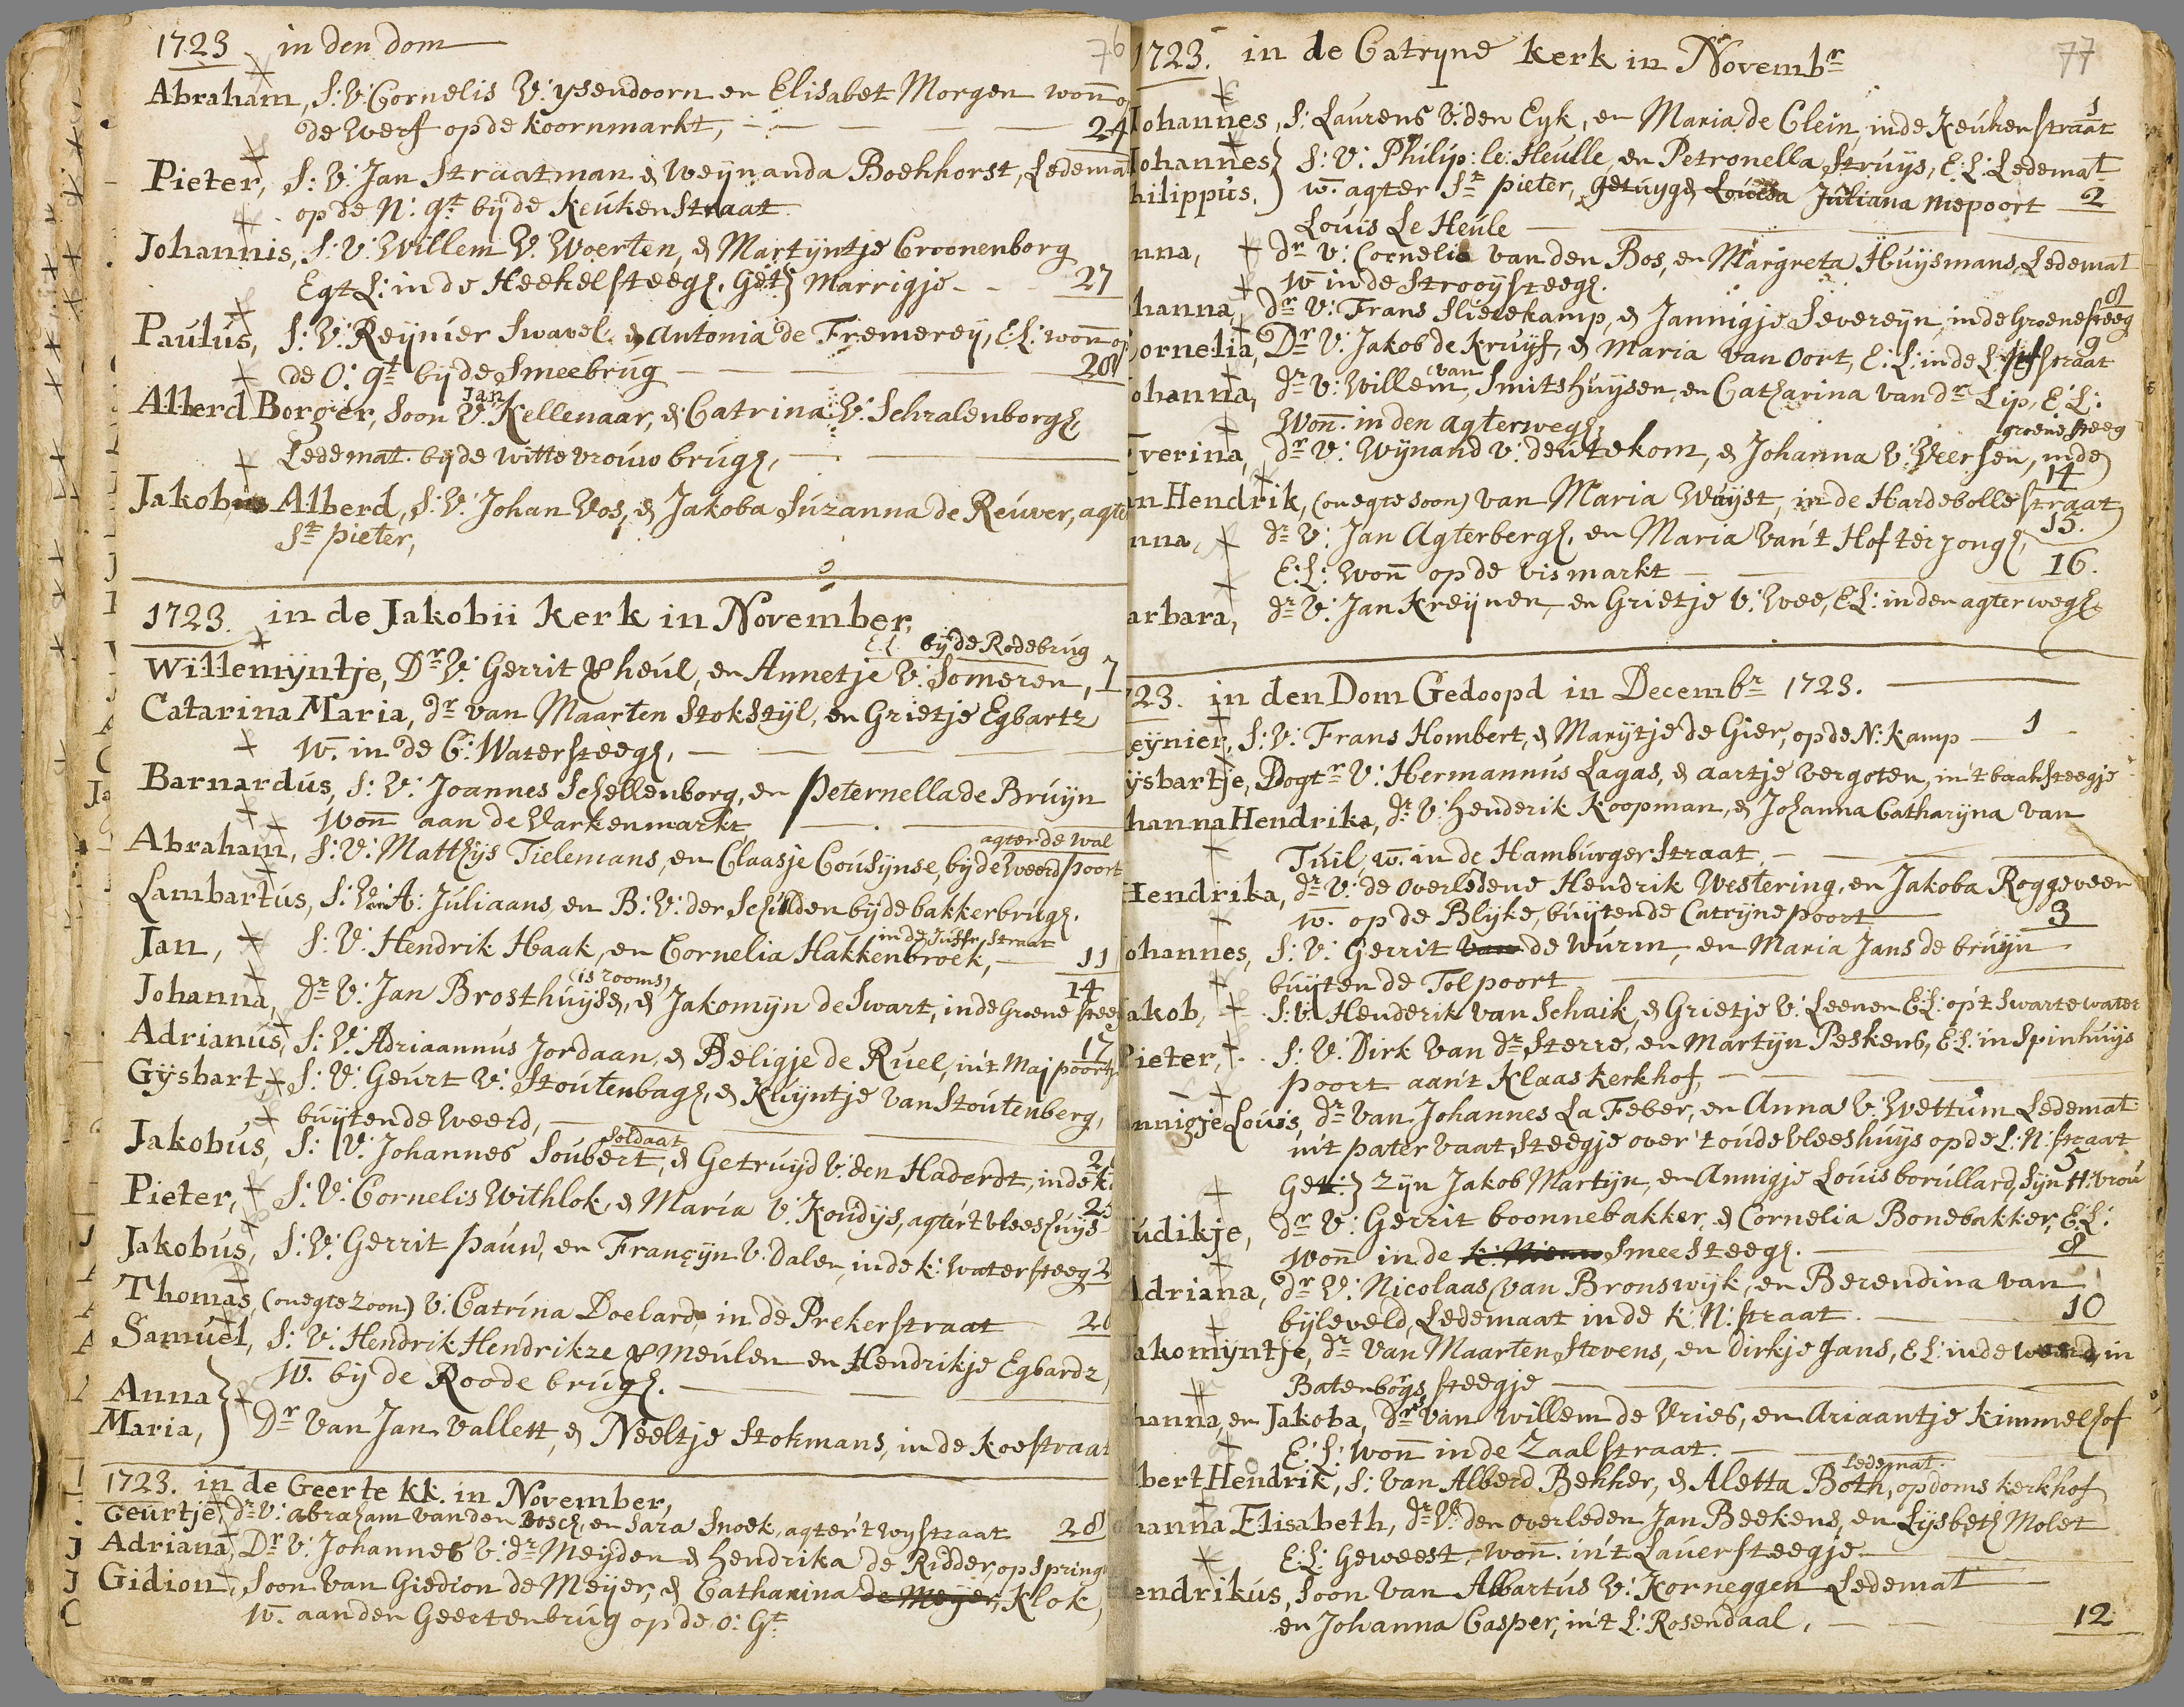 1723 in den dom 76
Abraham, S: V: Cornelis V: ysendoorn en Elisabet Morgen won op
de Werf op de koornmarkt, 24
Pieter, S: V: Jan Straatman & Weynanda Boekhorst, Ledemat
op de N: gt by de Keukenstraat
Johannis, S: V: Willem V: Woerten, & Martyntje Croonenborg
Egt L: in de Heekelsteegh, Get: Marrigje 27
Paulus, S: V: Reynier Swavel & Antonia de Fremerey, E L: won op
de O: gt by de Smeebrug 28
Jan
Alberd Borger, Soon V: Kellenaar, & Catrina V: Schalenborgh
Ledemat. by de Witte vrouw brugh,
Jakobus Alberd, S: V: Johan Vos, & Jakoba Suzanna de Reuver, agter
St pieter,
1723. in de Jakobii kerk in November,
E L: by de Rodebrug
Willemyntje, Dr V: Gerrit Verheul, en Annetje V: Someren, 7
Catarina Maria, dr van Maarten Stokstyl, en Grietje Egbartz
W. in de C: Watersteegh,
Barnardus, S: V: Joannes Schellenborg, en Peternella de Bruyn
Won aan de Varkenmarkt
agter de Wal
Abraham, S: V: Matthys Tielemans, en Claasje Cousynse, by de Weerdpoort
Lambartus, S: Van A: Juliaans, en B: V: der Schilden by de bakkerbrugh.
in de Juffr straat
Jan, S: V: Hendrik Haak, en Cornelia Hakkenbroek, 11
(is rooms) 14
Johanna, dr V: Jan Brosthuysen, & Jakomyn de Swart, in de Groene steeg
Adrianus, S: V: Adriaannus Jordaan, & Beligje de Ruel, in't Maj poortje 17
Gysbart S: V: Geurt V: Stoutenbagh, & Kruyntje van Stoutenberg,
buyten de Weerd,
Soldaat
Jakobus, S: V: Johannes Soubert, & Getruyd V: den Haderdt, in de k
Pieter, S: V: Cornelis Withlok, & Maria V: Koudys, agter't vleeshuys
Jakobus, S: V: Gerrit Pauw, en Françyn V: Dalen, in de k: Watersteeg
Thomas, (onegte zoon) V: Catrina Doelard, in de Prekerstraat
Samuel, S: V: Hendrik Hendrikze Vermeulen en Hendrikje Egbardz,
W. by de Roode brugh.
Anna
Maria, Dr van Jan Vallett, & Neeltje Stokmans, in de koestraat
1723. in de Geerte kk. in November,
Geurtje, dr V: abraham van den Bosch, en Sara Snoek, agter't Wystraat 28
Adriana, Dr V: Johannes V: dr Meyden & hendrika de Ridder, op Springw
Gidion, Soon van Giedion de Meyer, & Catharina de Meyer, Klok,
W. aan den Geertenbrug op de O: Gt
1723. in de Catryne kerk in Novembr 77
Johannes, S: Laurens V: den Eyk, en Maria de Clein, in de Keukenstraat 1
Johannes S: V: Philip: le: Heulle, en Petronella Struys, E: L: Ledemat
hilippus. W. agter St pieter, getuyge Louisa Juliana Niepoort 2
Louis Le Heule
nna, dr V: Cornelis van den Bos, en Margreta Huysmans Ledemat
W in de Strooysteegh.
hanna, dr V: Frans Slierekamp, & Jannigje Severeyn, in de Groenesteeg 8
ornelia, Dr V: Jakob de Kruyf, & Maria van Oort, E: L: in de L: Jufstraat 9
van
ohanna, dr V: Willem Smitshuysen, en Catharina van dr Lip, E: L:
Won: in den agterwegh,
groene steeg
verina, dr V: Wynand V: deutekom, & Johanna V: Veersen, in de
14
an Hendrik, (onegte soon) van Maria Wuyst, in de Hardebollestraat
nna, dr V: Jan Agterbergh, en Maria Van't Hof ter jongh, 15.
E: L: won op de vismarkt 16.
arbara, dr V: Jan Kreynen, en Grietje V: Wee, E L: in den agterwegh.
723. in den Dom Gedoopd in Decembr 1723.
eynier, S: V: Frans Hombert, & Marytje de Gier, op de N: kamp 1
ysbartje, Dogtr V: Hermannus Lagas, & Aartje Vergoten, in't baaksteegje
hanna Hendrika, dr V: henderik Koopman, & Johanna Catharyna van
Tuil, w. in de Hamburgerstraat,
Hendrika, dr V: de overledene Hendrik Westering, en Jakoba Roggeveen
W. op de Blyke, buyten de Catryne poort 3
ohannes, S: V: Gerrit van de Wurm, en Maria Jans de bruyn
buyten de Tolpoort
Jakob, S: V: Henderik van Schaik, & Grietje V: Leenen E: L: op't Swarte water
Pieter, S: V: Dirk Van dr Sterre, en Martyn Peskens, E: L: in Spinhuys
poort aan't Klaaskerkhof,
Annigje Louis, dr van Johannes La Feber, en Anna V: Wettum Ledemat
in't patervaatsteegje over't oude vleeshuys op de L: N: straat
5
Get: zyn Jakob Martyn, en Annigje Louis borullard, Syn H: vrou
udikje, dr V: Gerrit boonnebakker, & Cornelia Bonebakker, E: L:
Won in de k: Nieuw Smeesteegh. 8
Adriana, dr V: Nicolaas van Bronswyk, en Berendina van
byleveld, Ledemaat in de k: N: straat. 10
akomyntje, dr van Maarten Stevens, en dirkje Jans, E L: in de weerd, in
Batenborgs steegje
hanna, en Jakoba, drs van Willem de Vries, en Ariaantje Kimmelhof
E: L: won in de Zaalstraat.
Ledemat.
lbert Hendrik, S: van Alberd Bekker, & Aletta Both, op doms kerkhof
ohanna Elisabeth, dr V: den overleden Jan Beekens, en Lysbeth Molet
E: L: Geweest, won. in't Lauersteegje
endrikus, Soon van Albartus V: Korneggen Ledemat
en Johanna Casper, in't L: Rosendaal, 12